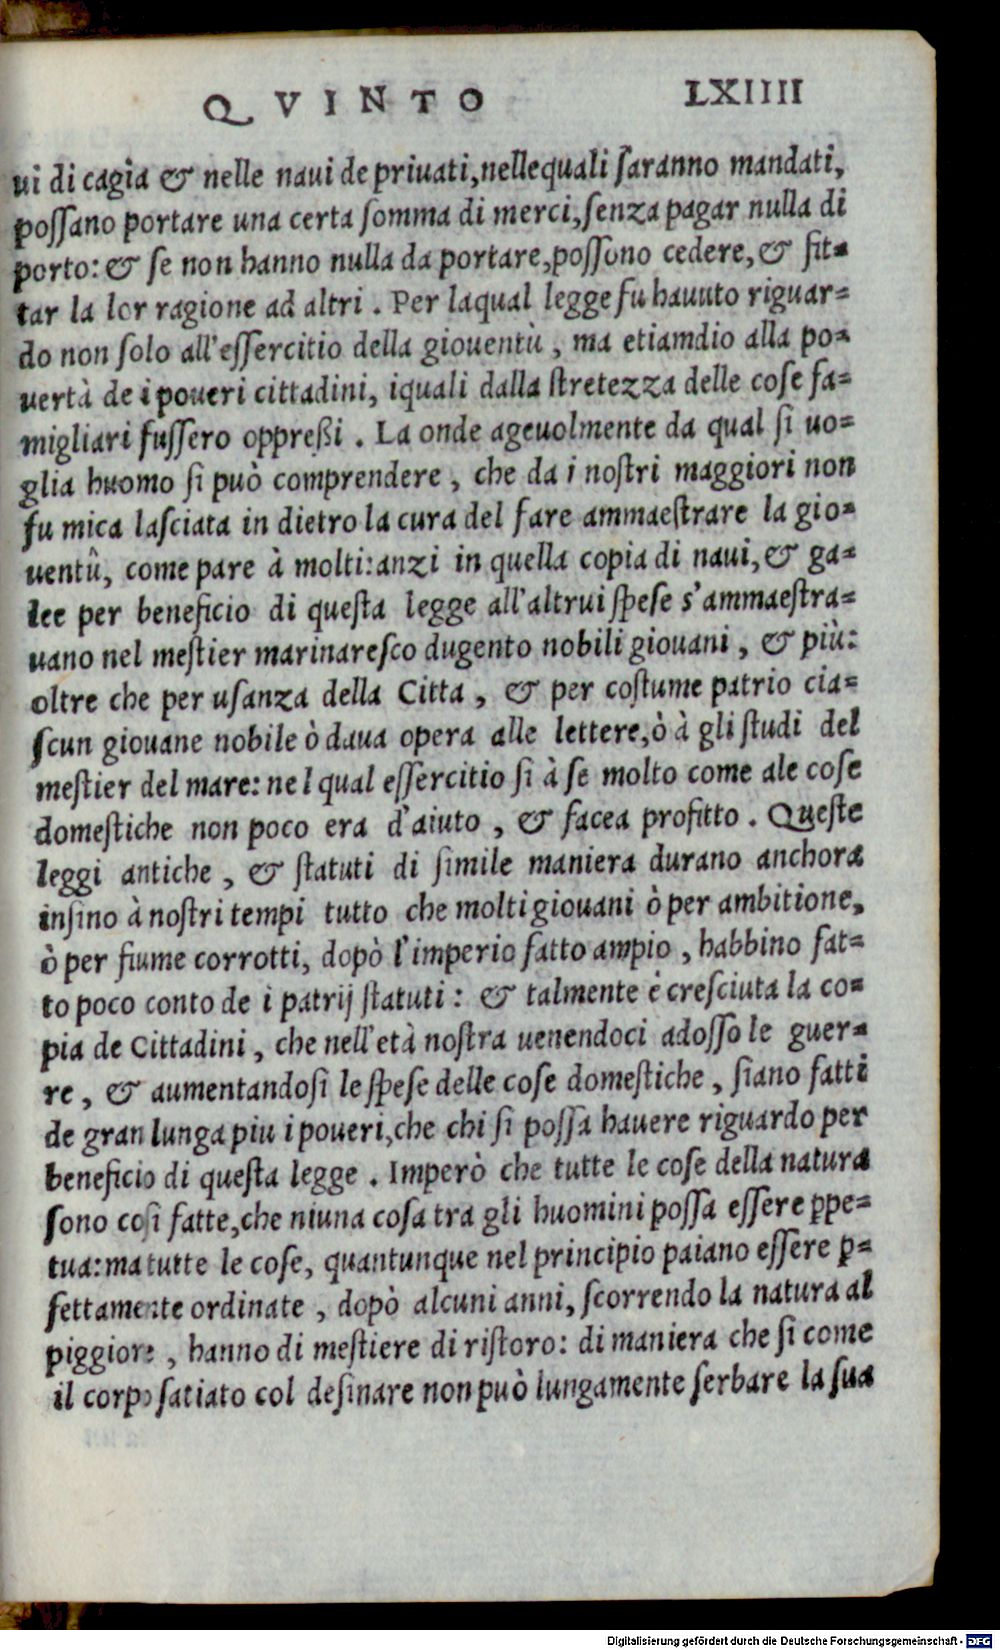 QVINTO LXIIII
ui di cagia & nelle naui de priuati, nellequali ſaranno mandati,
poſſano portare una certa ſomma di merci, ſenza pagar nulla di
porto: & ſe non hanno nulla da portare, poſſono cedere, & fit-
tar la lor ragione ad altri. Per laqual legge fu hauuto riguar-
do non ſolo all'eſſercitio della giouentù, ma etiamdio alla po-
uertà de i poueri cittadini, iquali dalla ſtretezza delle coſe fa-
migliari fuſſero oppreßi. La onde ageuolmente da qual ſi uo-
glia huomo ſi può comprendere, che da i noſtri maggiori non
fu mica laſciata in dietro la cura del fare ammaeſtrare la gio-
uentû, come pare à molti: anzi in quella copia di naui, & ga-
lee per beneficio di queſta legge all'altrui ſpeſe s'ammaeſtra-
uano nel meſtier marinareſco dugento nobili giouani, & più:
oltre che per uſanza della Citta, & per coſtume patrio cia-
ſcun giouane nobile ò daua opera alle lettere, ò à gli ſtudi del
meſtier del mare: nel qual eſſercitio ſi à ſe molto come ale coſe
domeſtiche non poco era d'aiuto, & facea profitto. Queſte
leggi antiche, & ſtatuti di ſimile maniera durano anchora
inſino à noſtri tempi tutto che molti giouani ò per ambitione,
ò per fiume corrotti, dopò l'imperio fatto ampio, habbino fat-
to poco conto de i patrij ſtatuti: & talmente è creſciuta la co-
pia de Cittadini, che nell'età noſtra uenendoci adoſſo le guer-
re, & aumentandoſi le ſpeſe delle coſe domeſtiche, ſiano fatti
de gran lunga piu i poueri, che chi ſi poſſa hauere riguardo per
beneficio di queſta legge. Imperò che tutte le coſe della natura
ſono coſi fatte, che niuna coſa tra gli huomini poſſa eſſere ꝑpe-
tua: ma tutte le coſe, quantunque nel principio paiano eſſere ꝑ-
fettamente ordinate, dopò alcuni anni, ſcorrendo la natura al
piggiore, hanno di meſtiere di riſtoro: di maniera che ſi come
il corpo ſatiato col deſinare non può lungamente ſerbare la ſua
Digitalisierung gefördert durch die Deutsche Forschungsgemeinschaft - DFG